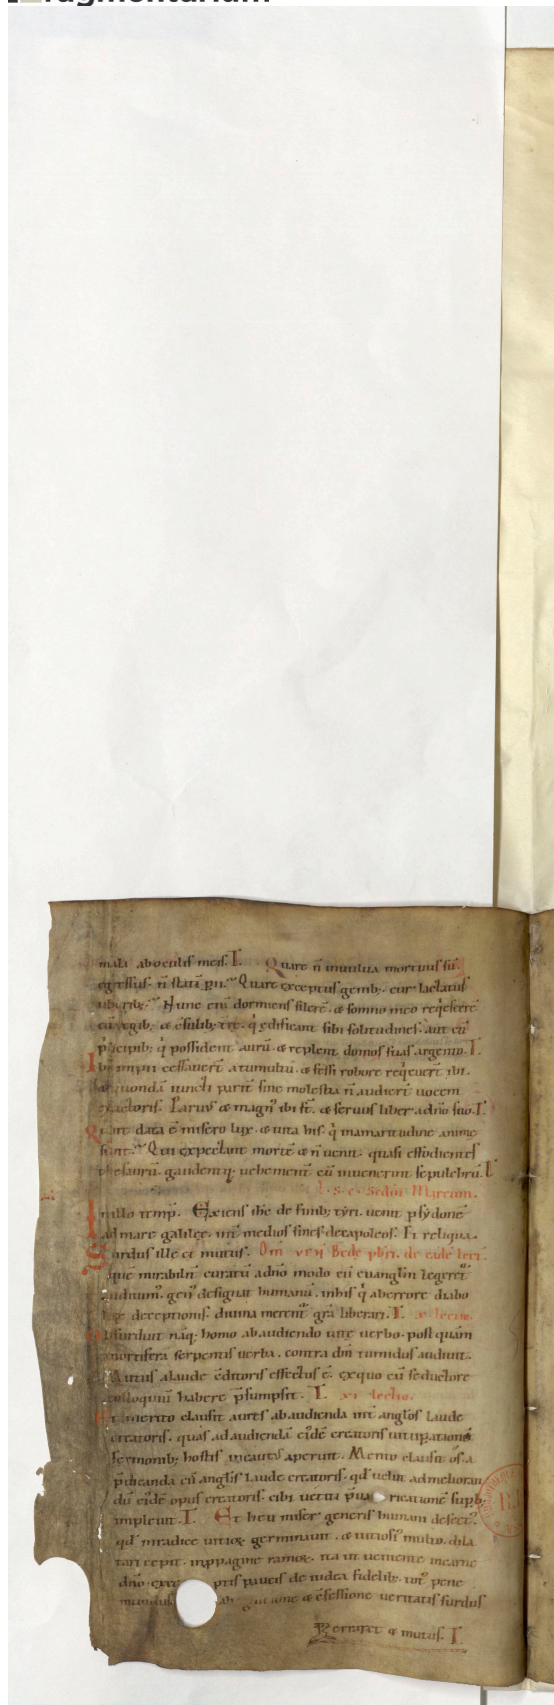 fragmentarium
mala ab oculis meis. T. Quare n̄ in uulua mortuus sū.
egressus n̄ statī pii. Quare exceptus genib; cur lactatus
uberib; Nunc eni dormiens silerē. & somno meo reqescerē
cū regib; & cōsulib; tr̄e. q̇ edificant sibi solitudines. aut cū
pncipib; q̇ possident aurū. & replent domos suas argento. T.
Ibi impii cessauert a tumultu. & fessi robore reqeuert ibi.
& quondā iuncti parit sine molestia n̄ audiert uocem
exactoris. Paruus & magn' ibi st̄. & seruus liber a dn̄o suo. T.
Quare data ē misero lux. & uita his q̇ in amaritudine anime
sunt. Qui expectant mortē & n̄ uenit. quasi effodientes
thesaurū. gaudentq; uehement cū inuenerint sepulchrū. T
S. e. Sedm Marcum.
In illo temp̄. Exiens ihc de finib; tyri. uenit p sydonē
ad mare galilee. int medios fines decapoleos. Et reliqua.
Surdus ille et mutus. Om̄ ven Bede pbr̄i. de eadē lect.
quē mirabilit curatū a dn̄o modo cū euanglm legeret
audiuim'. gen' designat humanū. in his q̇ ab errore diabo
lice deceptionis. diuina merent gr̄a liberari. T. x lectio.
Obsurduit nāq; homo ab audiendo uite uerbo. post quam
mortifera serpentis uerba. contra dm̄ tumidus audiuit.
Mutus a laude cditoris effectus ē. ex quo cū seductore
colloquiū habere psumpsit. T. xi lectio.
Et merito clausit aures ab audienda int angłos laude
creatoris. quas ad audiendā eidē creatoris uitupationē
sermonib; hostis incautus aperuit. Merito clausit os. a
pdicanda cū angłis laude creatoris. qd uelut ad melioran
dū eidē opus creatoris. cibi uetiti puaricatione supb;
impleuit. T. Et heu miser generis humani defect'.
qd in radice uitios germinauit. & uitios' multo. dila
tari cepit. in ppagine ramoꝝ. ita ut ueniente in carne
dn̄o exceptis paucis de iudea fidelib; tot' pene
mundus ab agnitione & cōfessione ueritatis surdus
Perraret & mutus. T.